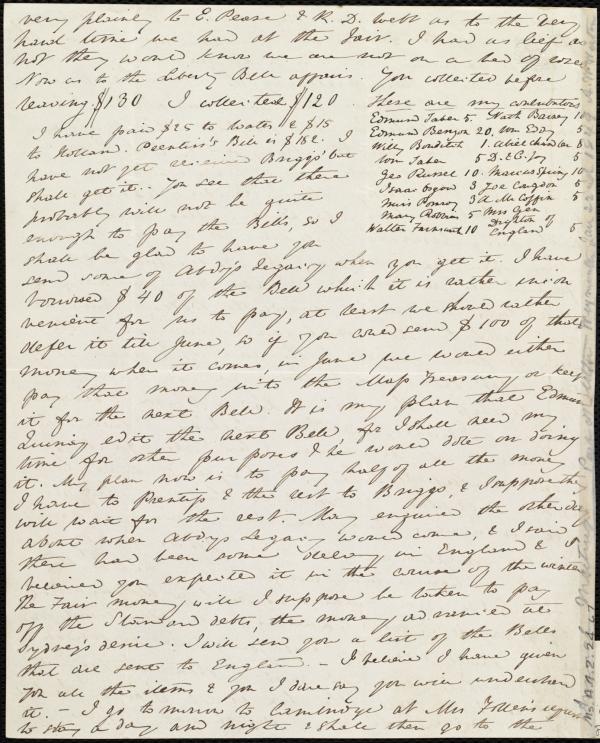 very plainly to E. Pease & R. D. Webb as to the very
hard time we had at the Fair. I had as lief as
not they would know we are not on a bed of roses.
Now as to the Liberty Bell affairs. You collected before
leaving $130 I collected $120. These are my contributors
Edmund Taber 5. Nath Barney 10
Edmund Benzon 20. Wm Eddy 5
Willy Bowditch 1.
Wm Taber 5 D. & E. G. Joy 5
Geo Russel 10. Marcus Spring 10
Isaac Osgood 3 Joe Congdon 5
Miss Pomroy 3 A. M. Coffin 5
Mary Robbins 5 Miss Gen
Walter Farnum 10 of
England 5
I have paid $25 to Waters & $15
to Holland. Prentiss's Bill is $182. I
have not yet received Briggs' but
shall get it. You see that there
probably will not be quite
enough to pay the Bills, so I
shall be glad to have you
send some of Abdy's Legacy when you get it. I have
borrowed $40 of the Bell which it is rather incon
venient for us to pay, at least we should rather
defer it till June, so if you could send $100 of that
money when it comes, in June we would either
pay that money into the Mass Treasury or keep
it for the next Bell. It is my plan that Edmund
Quincy edit the next Bell, for I shall need my
time for other purposes & he would dote on doing
it. My plan now is to pay half of all the money
I have to Prentiss & the rest to Briggs, & I suppose they
will wait for the rest. May enquired the other day
about when Abdys Legacy would come, & I said
there had been some delay in England & I
believed you expected it in the course of the winter
The Fair money will I suppose be taken to pay
off the Standard debts, the money advanced at
Sydney's desire. I will send you a list of the Bells
that are sent to England. — I believe I have given
you all the items & you I dare say you will understand
it. — I go to morrow to Cambridge at Mrs Follen's request
to stay a day and night & shall then go to the